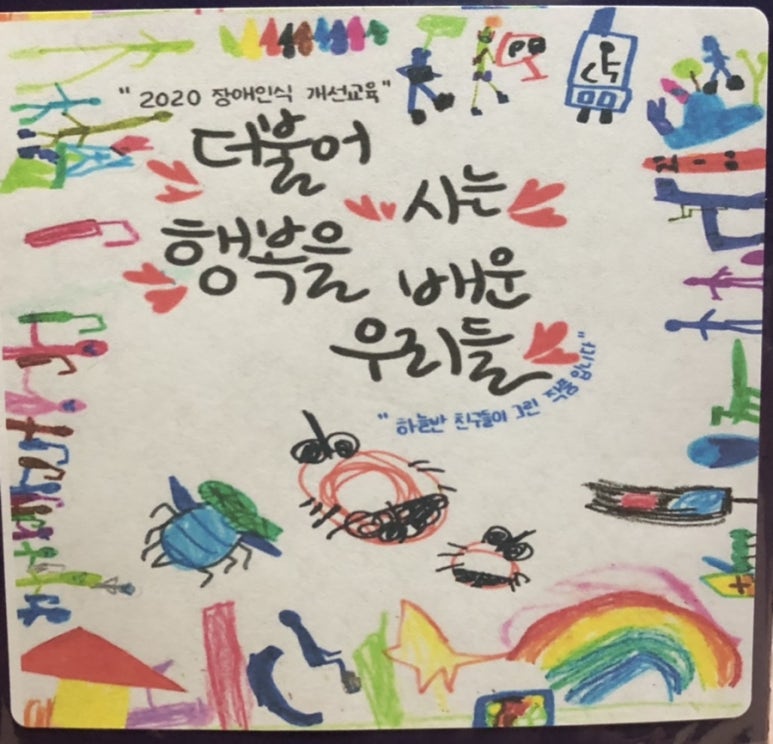 "2020 장애인식 개선교육"
더불어
사는
행복을
배운
우리들
"하늘반 친구들이 그린 작품입니다"